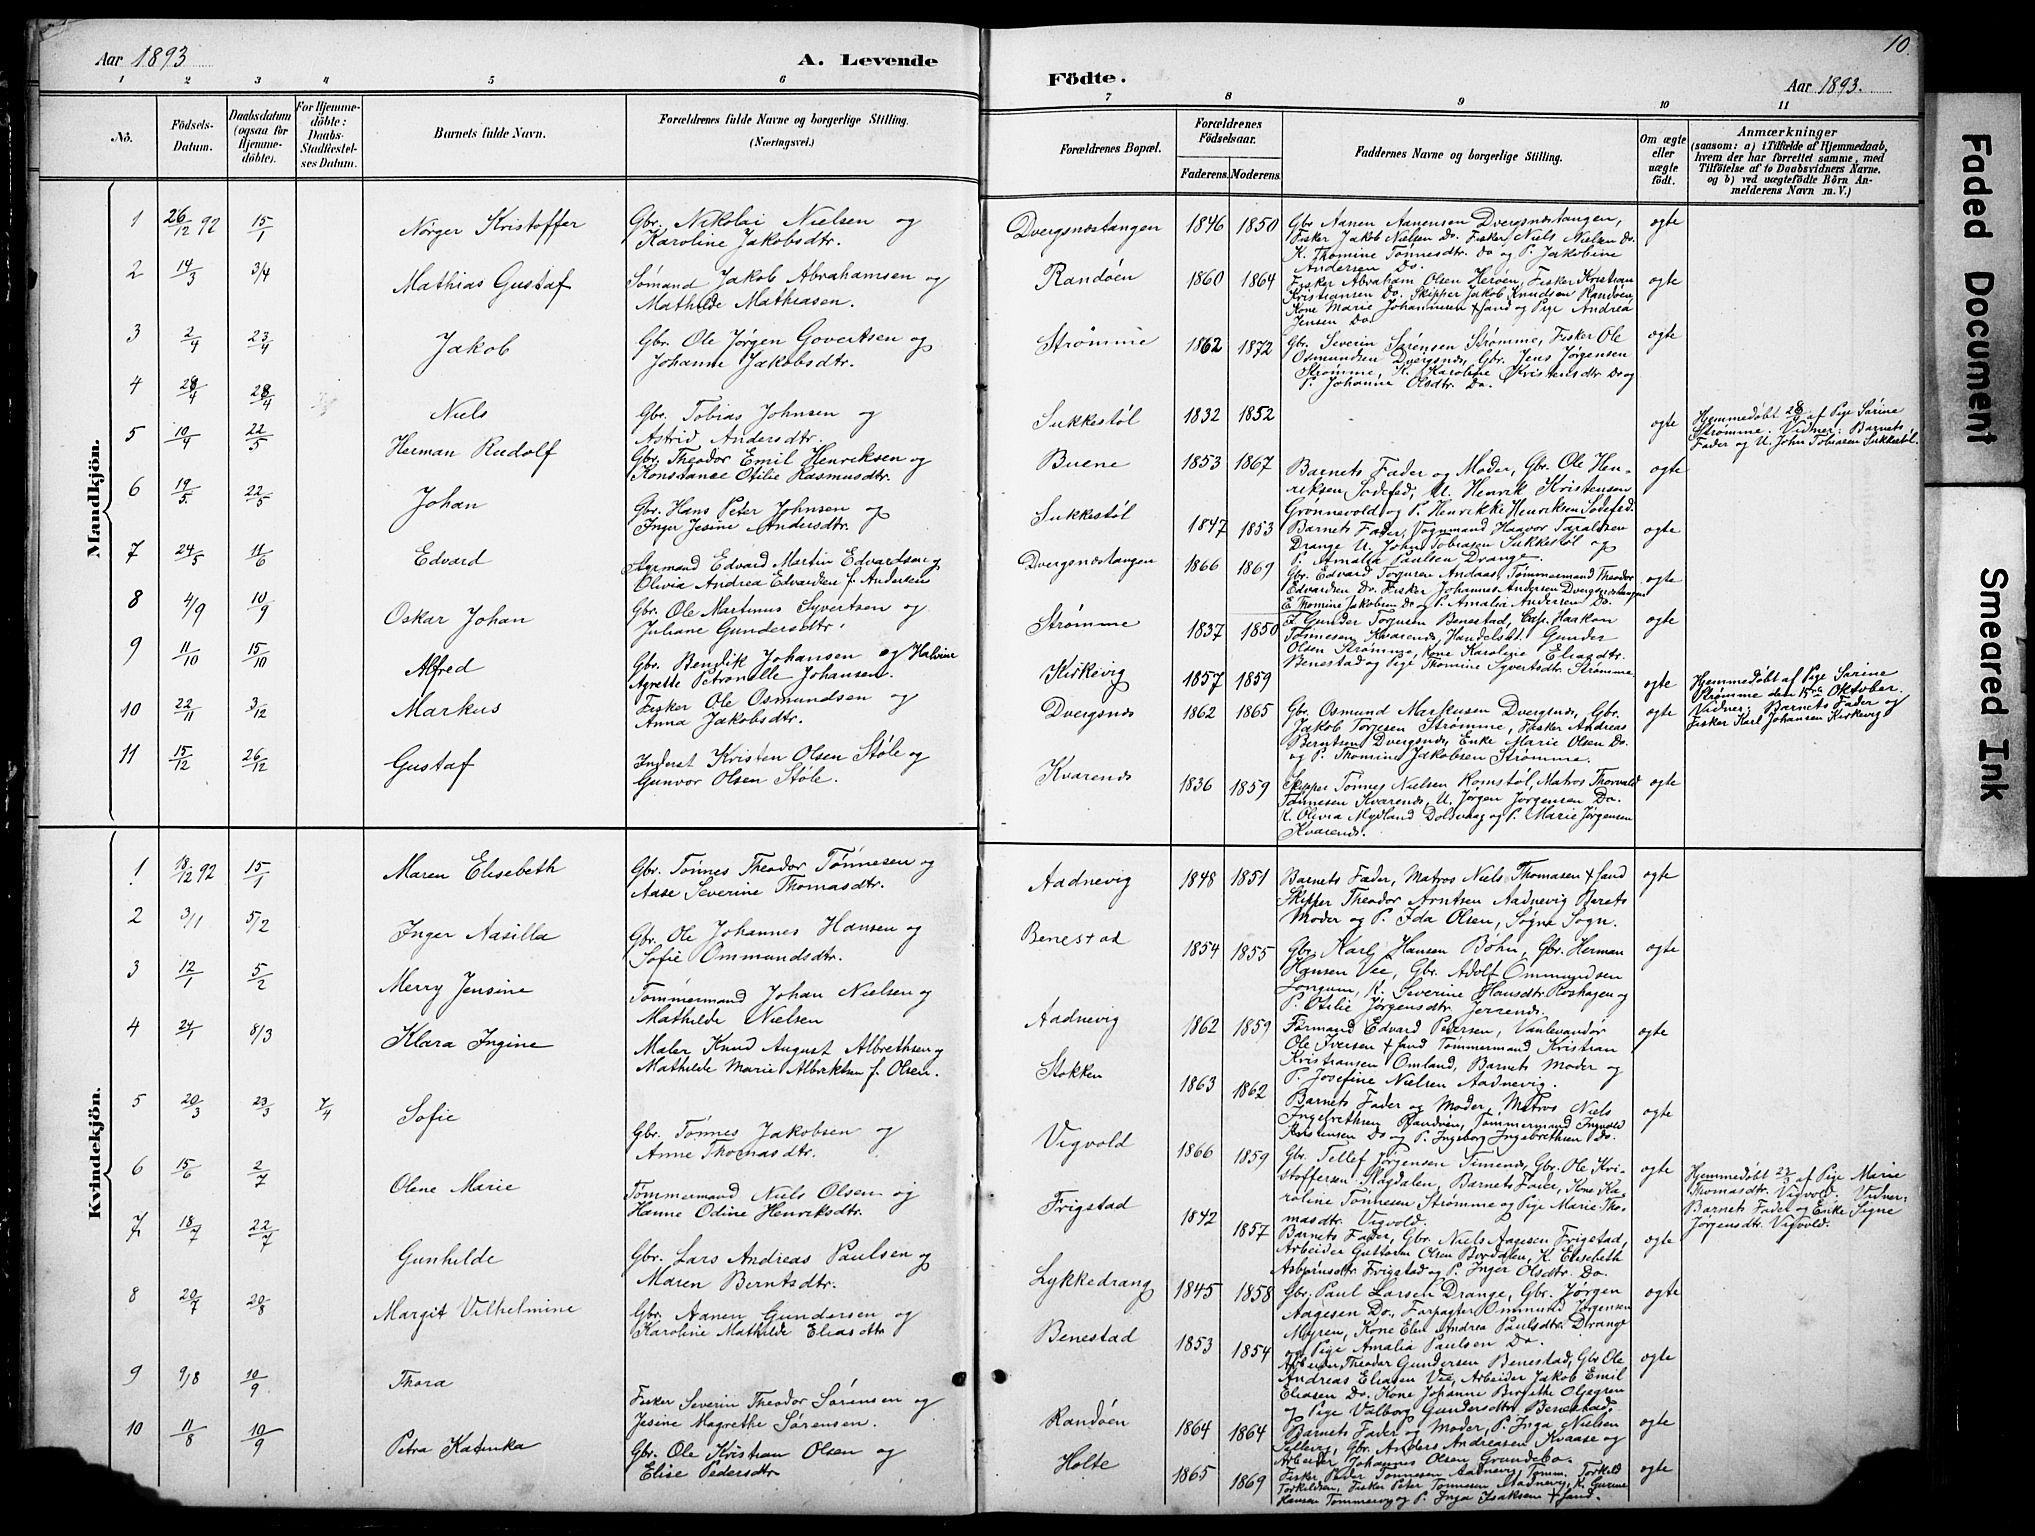 Aar 1893
A. Levende
1 2 3 4 5 6
No.
Födsels-
Datum.
Daabsdatum
(ogsaa for
Hjemme-
döbte).
For Hjemme-
döbte:
Daabs-
Stadfæstel-
ses Datum.
Barnets fulde Navn.
Forældrenes fulde Navne og borgerlige Stilling.
(Næringsvei.)
Mandkjön.
1 26/12 92 15/1 Nørger Kristoffer Gbr. Nikolai Nielsen og
Karoline Jakobsdtr.
2 14/3 3/4 Mathias Gustaf Sømand Jakob Abrahamsen og
Mathilde Mathiasen.
3 2/4 23/4 Jakob Gbr. Ole Jørgen Govertsen og
Johanne Jakobsdtr.
4 28/4 28/4 Niels Gbr. Tobias Johnsen og
Astrid Andersdtr.
5 10/4 22/5 Herman Rudolf Gbr. Theodor Emil Henriksen og
Konstance Otilie Rasmusdtr.
6 19/5 22/5 Johan Gbr. Hans Peter Johnsen og
Inger Jesine Andersdtr.
7 24/5 11/6 Edvard Styrmand Edvard Martin Edvardsen og
Olivia Andrea Edvardsen f. Andersen
8 4/9 10/9 Oskar Johan Gbr. Ole Martinus Syvertsen og
Juliane Gundersdtr.
9 11/10 15/10 Alfred Gbr. Bendik Johansen og Halvine
Agrette Petronelle Johansen.
10 22/11 3/12 Markus Fisker Ole Osmundsen og
Anna Jakobsdtr.
11 15/12 26/12 Gustaf Inderst Kristen Olsen Støle og
Gunvor Olsen Støle.
Kvindekjön.
1 18/12 92 15/1 Maren Elisebeth Gbr. Tønnes Theodor Tønnesen og
Aase Severine Thomasdtr.
2 3/1 5/2 Inger Aasilla Gbr. Ole Johannes Hansen og
Sofie Ommundsdtr.
3 12/1 5/2 Merry Jensine Tømmermand Johan Nielsen og
Mathilde Nielsen
4 24/1 8/3 Klara Ingine Maler Knud August Albrethsen og
Mathilde Marie Albrektsen f. Olsen.
5 20/3 23/3 7/4 Sofie Gbr. Tønnes Jakobsen og
Anne Thomasdtr.
6 15/6 2/7 Olene Marie Tømmermand Niels Olsen og
Hanne Odine Henriksdtr.
7 18/7 22/7 Gunhilde Gbr. Lars Andreas Paulsen og
Maren Berntsdtr.
8 20/7 20/8 Margit Vilhelmine Gbr. Aanen Gundersen og
Karoline Mathilde Eliasdtr
9 9/8 10/9 Thora Fisker Severin Theodor Sørensen og
Jesine Magrethe Sørensen.
10 11/8 10/9 Petra Katinka Gbr. Ole Kristian Olsen og
Elise Pedersdtr
10.
Födte.
Aar 1893.
7 8 9 10 11
Forældrenes Bopæl.
Forældrenes
Födselsaar.
Faderens. Moderens.
Faddernes Navne og borgerlige Stilling.
Om ægte
eller
uægte
födt.
Anmærkninger
(saasom: a) i Tilfælde af Hjemmedaab,
hvem der har forrettet samme, med
Tilföielse af to Daabsvidners Navne,
og b) ved uægtefödte Börn An-
melderens Navn m. V.)
Dvergsnæstangen 1846 1850 Gbr Aanen Aanensen Dvergsnæstangen, ægte
Fisker Jakob Nielsen Do. Fisker Niels Nielsen Do.
K. Thomine Tønnesdtr. Do og P. Jakobine
Andersen Do.
Randøen 1860 1864 Fisker Abraham Olsen Herøen, Fisker Kristian ægte
Kristiansen Do. Skipper Jakob Knudsen Randøen,
Kone Marie Johannesen + sand og Pige Andrea
Jensen Do.
Strømme 1862 1872 Gbr. Severin Sørensen Strømme, Fisker Ole ægte
Osmundsen Dvergsnæs, Gbr. Jens Jørgensen
Strømme, K. Karoline Kristensdtr Do og
P. Johanne Olsdtr. Do.
Sukkestøl 1832 1852 ægte Hjemmedøbt 28/4 af Pige Sørine
Strømme. Vidner: Barnets
Fader og U. John Tobiasen Sukkestøl.
Buene 1853 1867 Barnets Fader og Moder, Gbr. Ole Hen- ægte
riksen Sodefed, U. Henrik Kristensen
Grønnevold og P. Henrikke Henriksen Sodefed.
Sukkestøl 1847 1853 Barnets Fader, Vognmand Haavor Taraldsen ægte
Drange U. John Tobiasen Sukkestøl og
P. Amalia Paulsen Drange.
Dvergsnæstangen 1866 1869 Gbr. Edvard Torjusen Andaas, Tømmermand Theodor ægte
Edvardsen Do. Fisker Johannes Andersen Dvergsnæstangen
E. Thomine Jakobsen Do og P. Amalia Andersen Do.
Strømme 1837 1850 F. Gunder Torjusen Benestad, Cap. Haakon ægte
Tønnesen Kvarenæs, Handelsbt. Gunder
Olsen Strømme, Kone Karoline Eliasdtr.
Benestad og Pige Thomine Syvertsdtr. Strømme
Kirkevig 1857 1859 ægte Hjemmedøbt af Pige Sørine
Strømme den 15de Oktober.
Vidner: Barnets Fader og
Fisker Karl Johansen Kirkevig
Dvergsnæs 1862 1865 Gbr. Osmund Markusen Dvergsnæs, Gbr. ægte
Jakob Torjesen Strømme, Fisker Andreas
Berntsen Dvergsnæs, Enke Marie Olsen Do.
og P. Thomine Jakobsen Strømme.
Kvarenæs 1836 1859 Skipper Tønnes Nielsen Romstøl, Matros Thorvald ægte
Tønnesen Kvarenæs, U. Jørgen Jørgensen Do.
K. Olivia Mydland Dolsvaag og P. Marie Jørgensen
Kvarenæs.
Aadnevig 1848 1851 Barnets Fader, Matros Niels Thomasen + sand ægte
Skipper Theodor Arntsen Aadnevig Barnets
Moder og P. Ida Olsen, Søgne Sogn.
Benestad 1854 1855 Gbr. Karl Hansen Bøhn, Gbr. Herman ægte
Hansen Vee, Gbr. Adolf Ommundsen
Longum, K. Severine Hansdtr. Roshagen og
P. Otilie Jørgensdtr. Jerrenæs.
Aadnevig 1862 1859 Formand Edvard Pedersen, Vanlevandør ægte
Ole Iversen + sand Tømmermand Kristian
Kristiansen Omland, Barnets Moder og
P. Josefine Nielsen Aadnevig.
Stokken 1863 1862 Barnets Fader og Moder, Matros Niels ægte
Ingebrethsen Randøen, Tømmermand Ingvald
Kristensen Do og P. Ingeborg Ingebrethsen Do.
Vigvold 1866 1859 Gbr. Tellef Jørgensen Timenæs, Gbr. Ole Kri- ægte
stoffersen Magdalen, Barnets Fader, Kone Ka-
roline Tønnesen Strømme og Pige Marie Tho-
masdtr. Vigvold.
Hjemmedøbt 22/3 af Pige Marie
Thomasdtr. Vigvold. Vidner:
Barnets Fader og Enke Signe
Jørgensdtr. Vigvold.
Frigstad 1842 1857 Barnets Fader, Gbr. Niels Aagesen Frigstad, ægte
Arbeider Guttorm Olsen Bordalen, K. Elisebeth
Asbjørnsdtr Frigstad og P. Inger Olsdtr. Do.
Lykkedrang 1845 1858 Gbr. Paul Larsen Drange, Gbr. Jørgen ægte
Aagesen Do., Forpagter Ommund Jørgensen
Myren, Kone Elen Andrea Paulsdtr. Drange
og Pige Amalia Paulsen Do.
Benestad 1853 1854 Arbeider Theodor Gundersen Benestad, Gbr. Ole ægte
Andreas Eliasen Vee, Arbeider Jakob Emil
Eliasen Do. Kone Johanne Birgithe Oljegren
og Pige Valborg Gundersdtr Benestad.
Randøen 1864 1864 Barnets Fader og Moder, P. Inga Nielsen ægte
Gbr. Anders Andreasen Kvaase og
Arbeider Johannes Olsen Grundebo.
Holte 1865 1869 Fisker Peder Tønnesen Aadnevig, Tømm. Torkild ægte
Torkildsen, Fisker Peter Tønnesen Aadnevig, K. Gurine
Hansen Tømmervog og P. Inga Isaksen + sand.
Faded Document
Smeared Ink